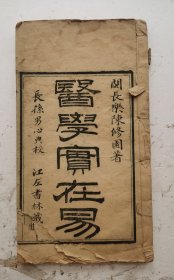 閩長樂陳修園著
醫學實在易
長孫男心典校
江左書林藏